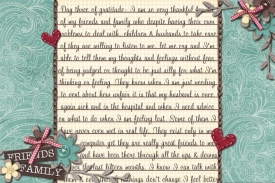 Day three of gratitude... I am so very thankful for
of my friends and family who despite having their own
problems to deal with, children & husbands to take care
of they are willing to listen to me, let me cry and I'm
able to tell them my thoughts and feelings without fear
of being judged or thought to be just silly for what I'm
thinking or feeling. They know when I am just needing
to vent about how unfair it is that my husband is once
again sick and in the hospital and when I need advice
on what to do when I am feeling lost. Some of them I
have never even met in real life. They exist only in my
computer, yet they are really great friends to me
and have been there through all the ups & downs
over the last fifteen months. I know to them, even
things don't change I feel better
FRIENDS
FAMILY